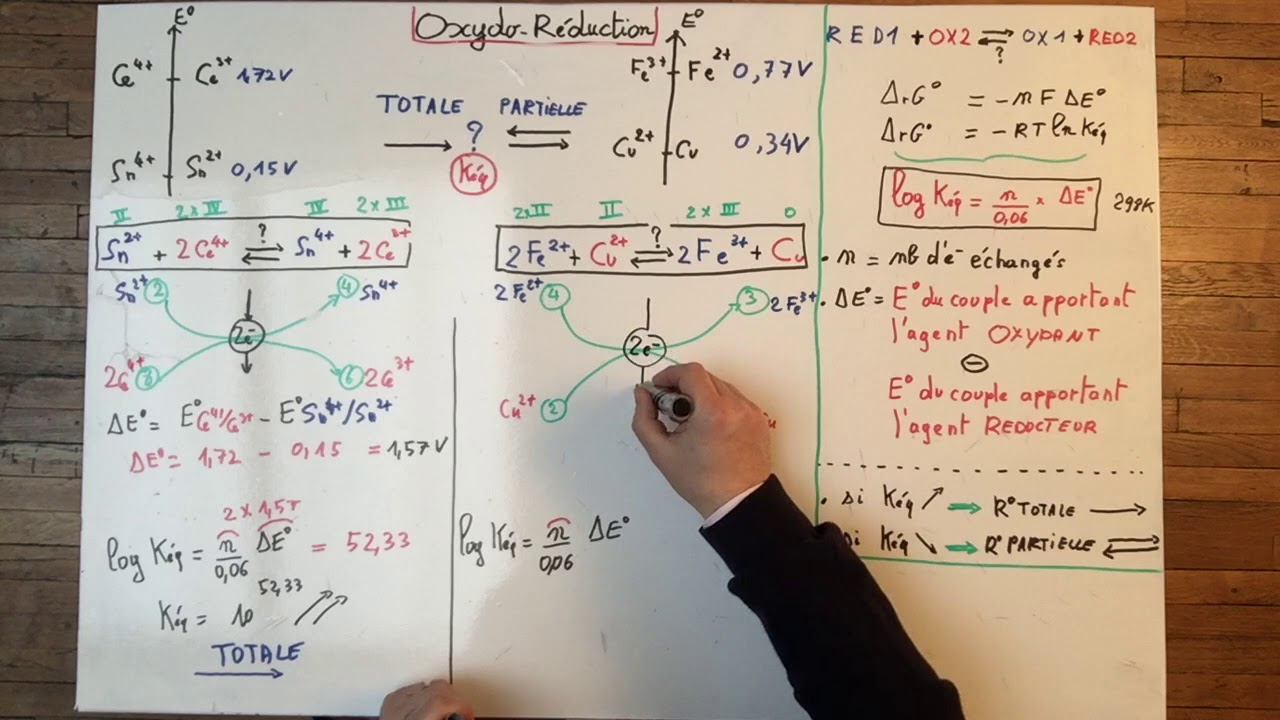 Oxydo-Réduction
E°
Ce⁴⁺ Ce³⁺ 1,72V
Sn⁴⁺ Sn²⁺ 0,15V
TOTALE PARTIELLE
→ ? ⇌
Kéq
E°
Fe³⁺ Fe²⁺ 0,77V
Cu²⁺ Cu 0,34V
II 2 x IV IV 2 x III
?
Sn²⁺ + 2Ce⁴⁺ ⇌ Sn⁴⁺ + 2Ce³⁺
Sn²⁺ 2 4 Sn⁴⁺
2e⁻
2Ce⁴⁺ 8 6 2Ce³⁺
ΔE° = E°Ce⁴⁺/Ce³⁺ - E°Sn⁴⁺/Sn²⁺
ΔE° = 1,72 - 0,15 = 1,57V
2 x 1,57
log Kéq = n/0,06 ΔE° = 52,33
Kéq = 10^52,33
TOTALE
→
2xII II 2 x III 0
?
2Fe²⁺ + Cu²⁺ ⇌ 2Fe³⁺ + Cu
2Fe²⁺ 4 3 2Fe³⁺
2e⁻
Cu²⁺ 2
log Kéq = n/0,06 ΔE°
RED1 + OX2 ⇌ OX1 + RED2
?
ΔrG° = -nFΔE°
ΔrG° = -RT ln Kéq
log Kéq = n/0,06 x ΔE° 298K
• n = nb d'e⁻ échangés
• ΔE° = E° du couple apportant
l'agent OXYDANT
⊖
E° du couple apportant
l'agent REDUCTEUR
• si Kéq ↗ ⇒ R° TOTALE →
si Kéq ↘ ⇒ R° PARTIELLE ⇌